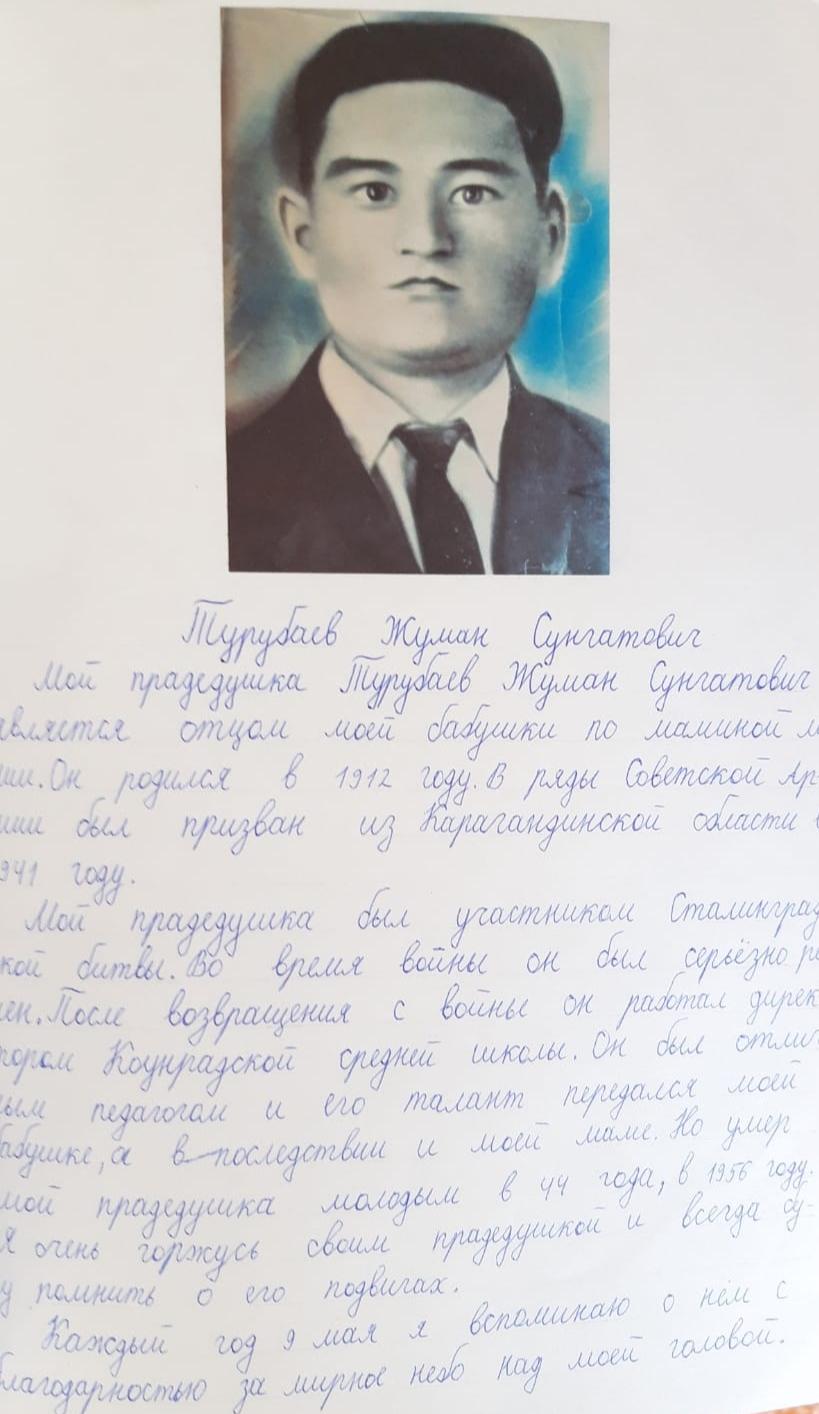 Турубаев Жуман Сунгатович
Мой прадедушка Турубаев Жуман Сунгатович
является отцом моей бабушки по маминой
ии. Он родился в 1912 году. В ряды Советской Ар-
мии был призван из Карагандинской области в
941 году.
Мой прадедушка был участником Сталинград
кой битвы. Во время войны он был серьёзно ра
ен. После возвращения с войны он работал дирек
тором Коунрадской средней школы. Он был отлич
ным педагогом и его талант передался моей
бабушке, а в последствии и моей маме. Но умер
мой прадедушка молодым в 44 года, в 1956 году.
Я очень горжусь своим прадедушкой и всегда бу-
у помнить о его подвигах.
Каждый год 9 мая я вспоминаю о нём с
благодарностью за мирное небо над моей головой.